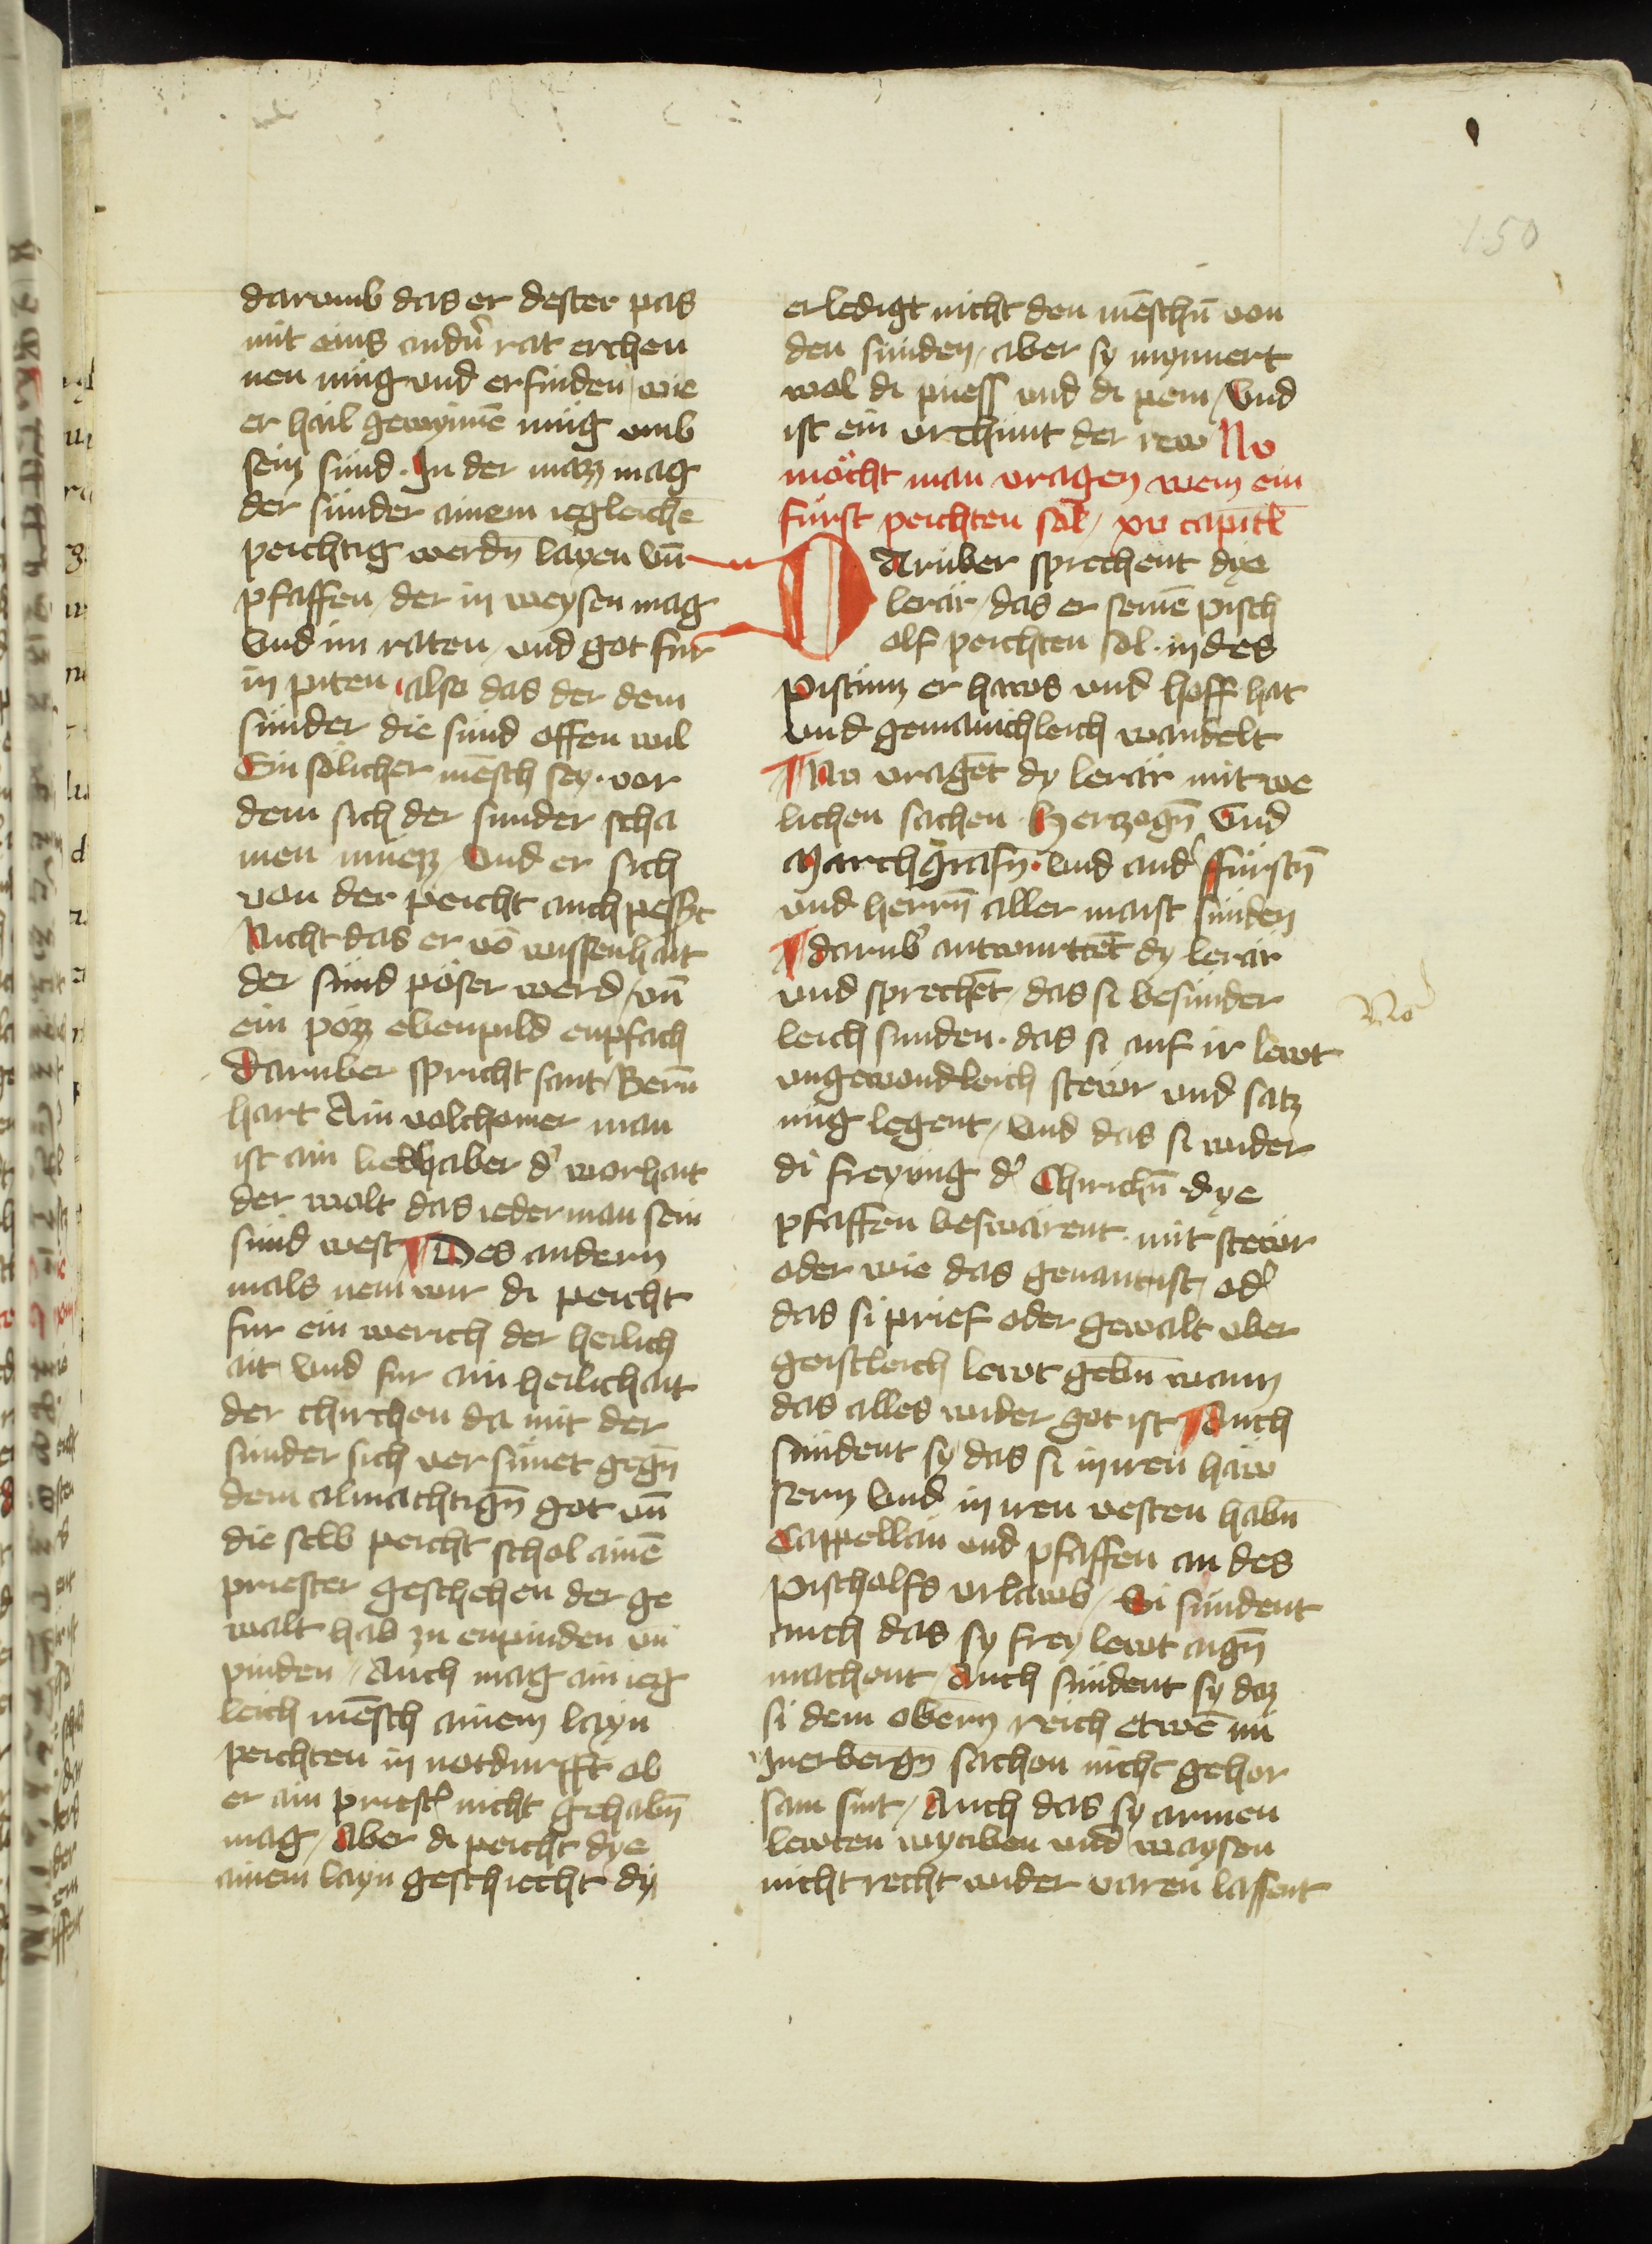 150
darumb das er dester pas
mit eins andn̄ rat erchen
nen müg und erfinden / wie
er hail gewynnē müg umb
sein sünd . In der mazz mag
der sünder ainem iegleichē
peichtig werdn̄ layen vn̄
pfaffen / der in weysen mag
Und im raten / und got für
in piten / also das der dem
sünder die sünd offen wil
Ein sölicher mēsch sey . vor
dem sich der sunder scha
men müezz / Und er sich
von der peicht auch pesser
Nicht das er vō wissenhait
der sünd pöser werd / vn̄
ein pözz ebenpild enpfach
Daruber spricht sant Bern̄
hart Ain volchomer man
ist ain liebhaber d' worhait
der wolt das iederman sein
sünd west ¶ Des andern
mals nem wir di peicht
fur ein werich der heilich
ait und fur ain heilichait
der chirchen da mit der
sünder sich versünet gegn̄
dem almachtign̄ got vn̄
die selb peicht schol ainē
priester geschehen der ge
walt hab zu enpinden vn̄
pinden / Auch mag ain ieg
leich mēsch ainem layn
peichten in notdurfft ob
er ain priest' nicht gehabn̄
mag / Aber di peicht dye
ainem layn geschiecht dy
erledigt nicht den mēschn̄ von
den sünden / aber sy mynnert
wol di puess und di pein / Und
ist ein urchunt der rew Nv
möcht man vragen wem ein
fürst peichten söl / xv capitl̄
DAruber sprechent dye
lerär / das er seinē pisch
olf peichten sol . in des
pistum er haws und hoff hat
und gemainichleich wandelt
¶ Nv vragēt dy lerär mit we
lichen sachen Hertzogn̄ Und
Marchgrafn̄ . und and' fürstn̄
und herrn̄ aller maist sünden
¶ darub' antwurttēt dy lerär
und sprechēt / das si besünder
No
leich sunden . das si auf ir lewt
ungewondleich stewr und satz
ung legent / Und das si wider
di freyung d' Chirichn̄ dye
pfaffen beswärent . mit stewr
oder wie das genant ist / od'
das si prief oder gewalt uber
geistleich lewt gebn̄ wann
das alles wider got ist ¶ Auch
sündent sy das si in iren häw
sern Und in iren vesten habn̄
Cappellan und pfaffen an des
pischolfs urlawb / Si sündent
auch das sy frey lewt aign̄
machent / Auch sündent sy daz
si dem obern̄ reich etwē in
Inerbergn̄ sachen nicht gehor
sam sint / Auch das sy armen
lewten wytiben und waysen
nicht recht wider varen lassent